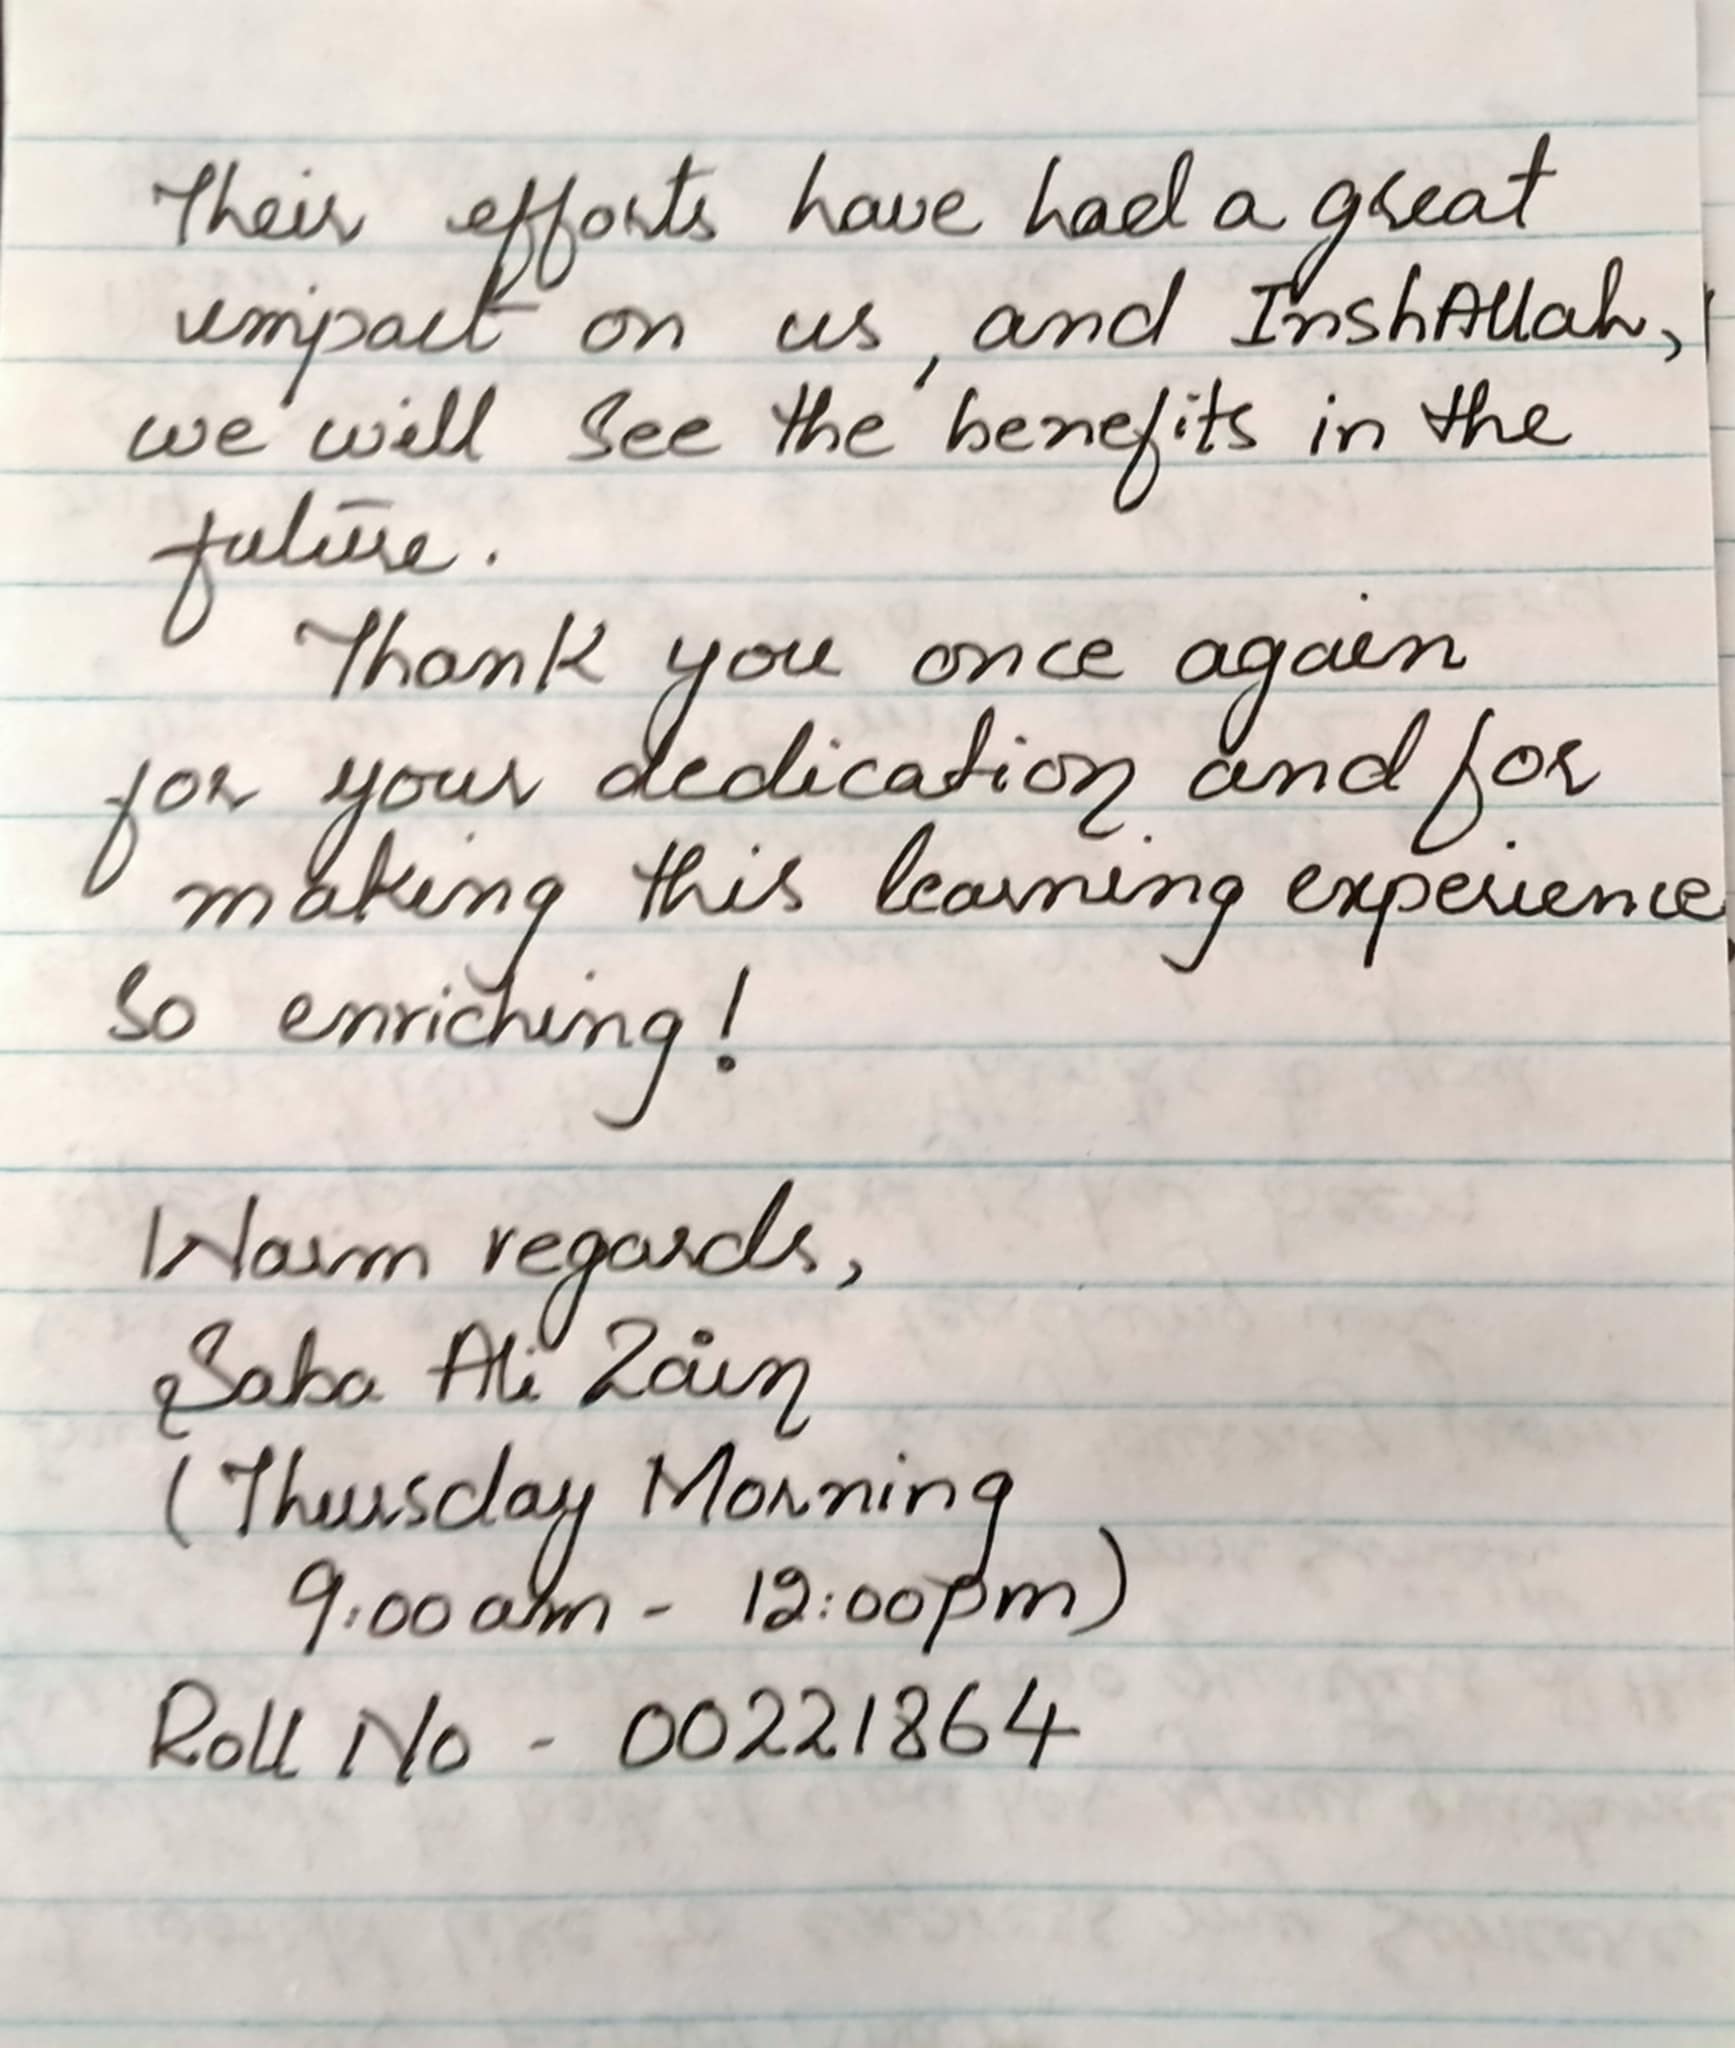 Their efforts have had a great
impact on us, and InshAllah,
we will see the benefits in the
future.
Thank you once again
for your dedication and for
making this learning experience
so enriching!
Warm regards,
Saba Ali Zain
(Thursday Morning
9:00am - 12:00pm)
Roll No - 00221864